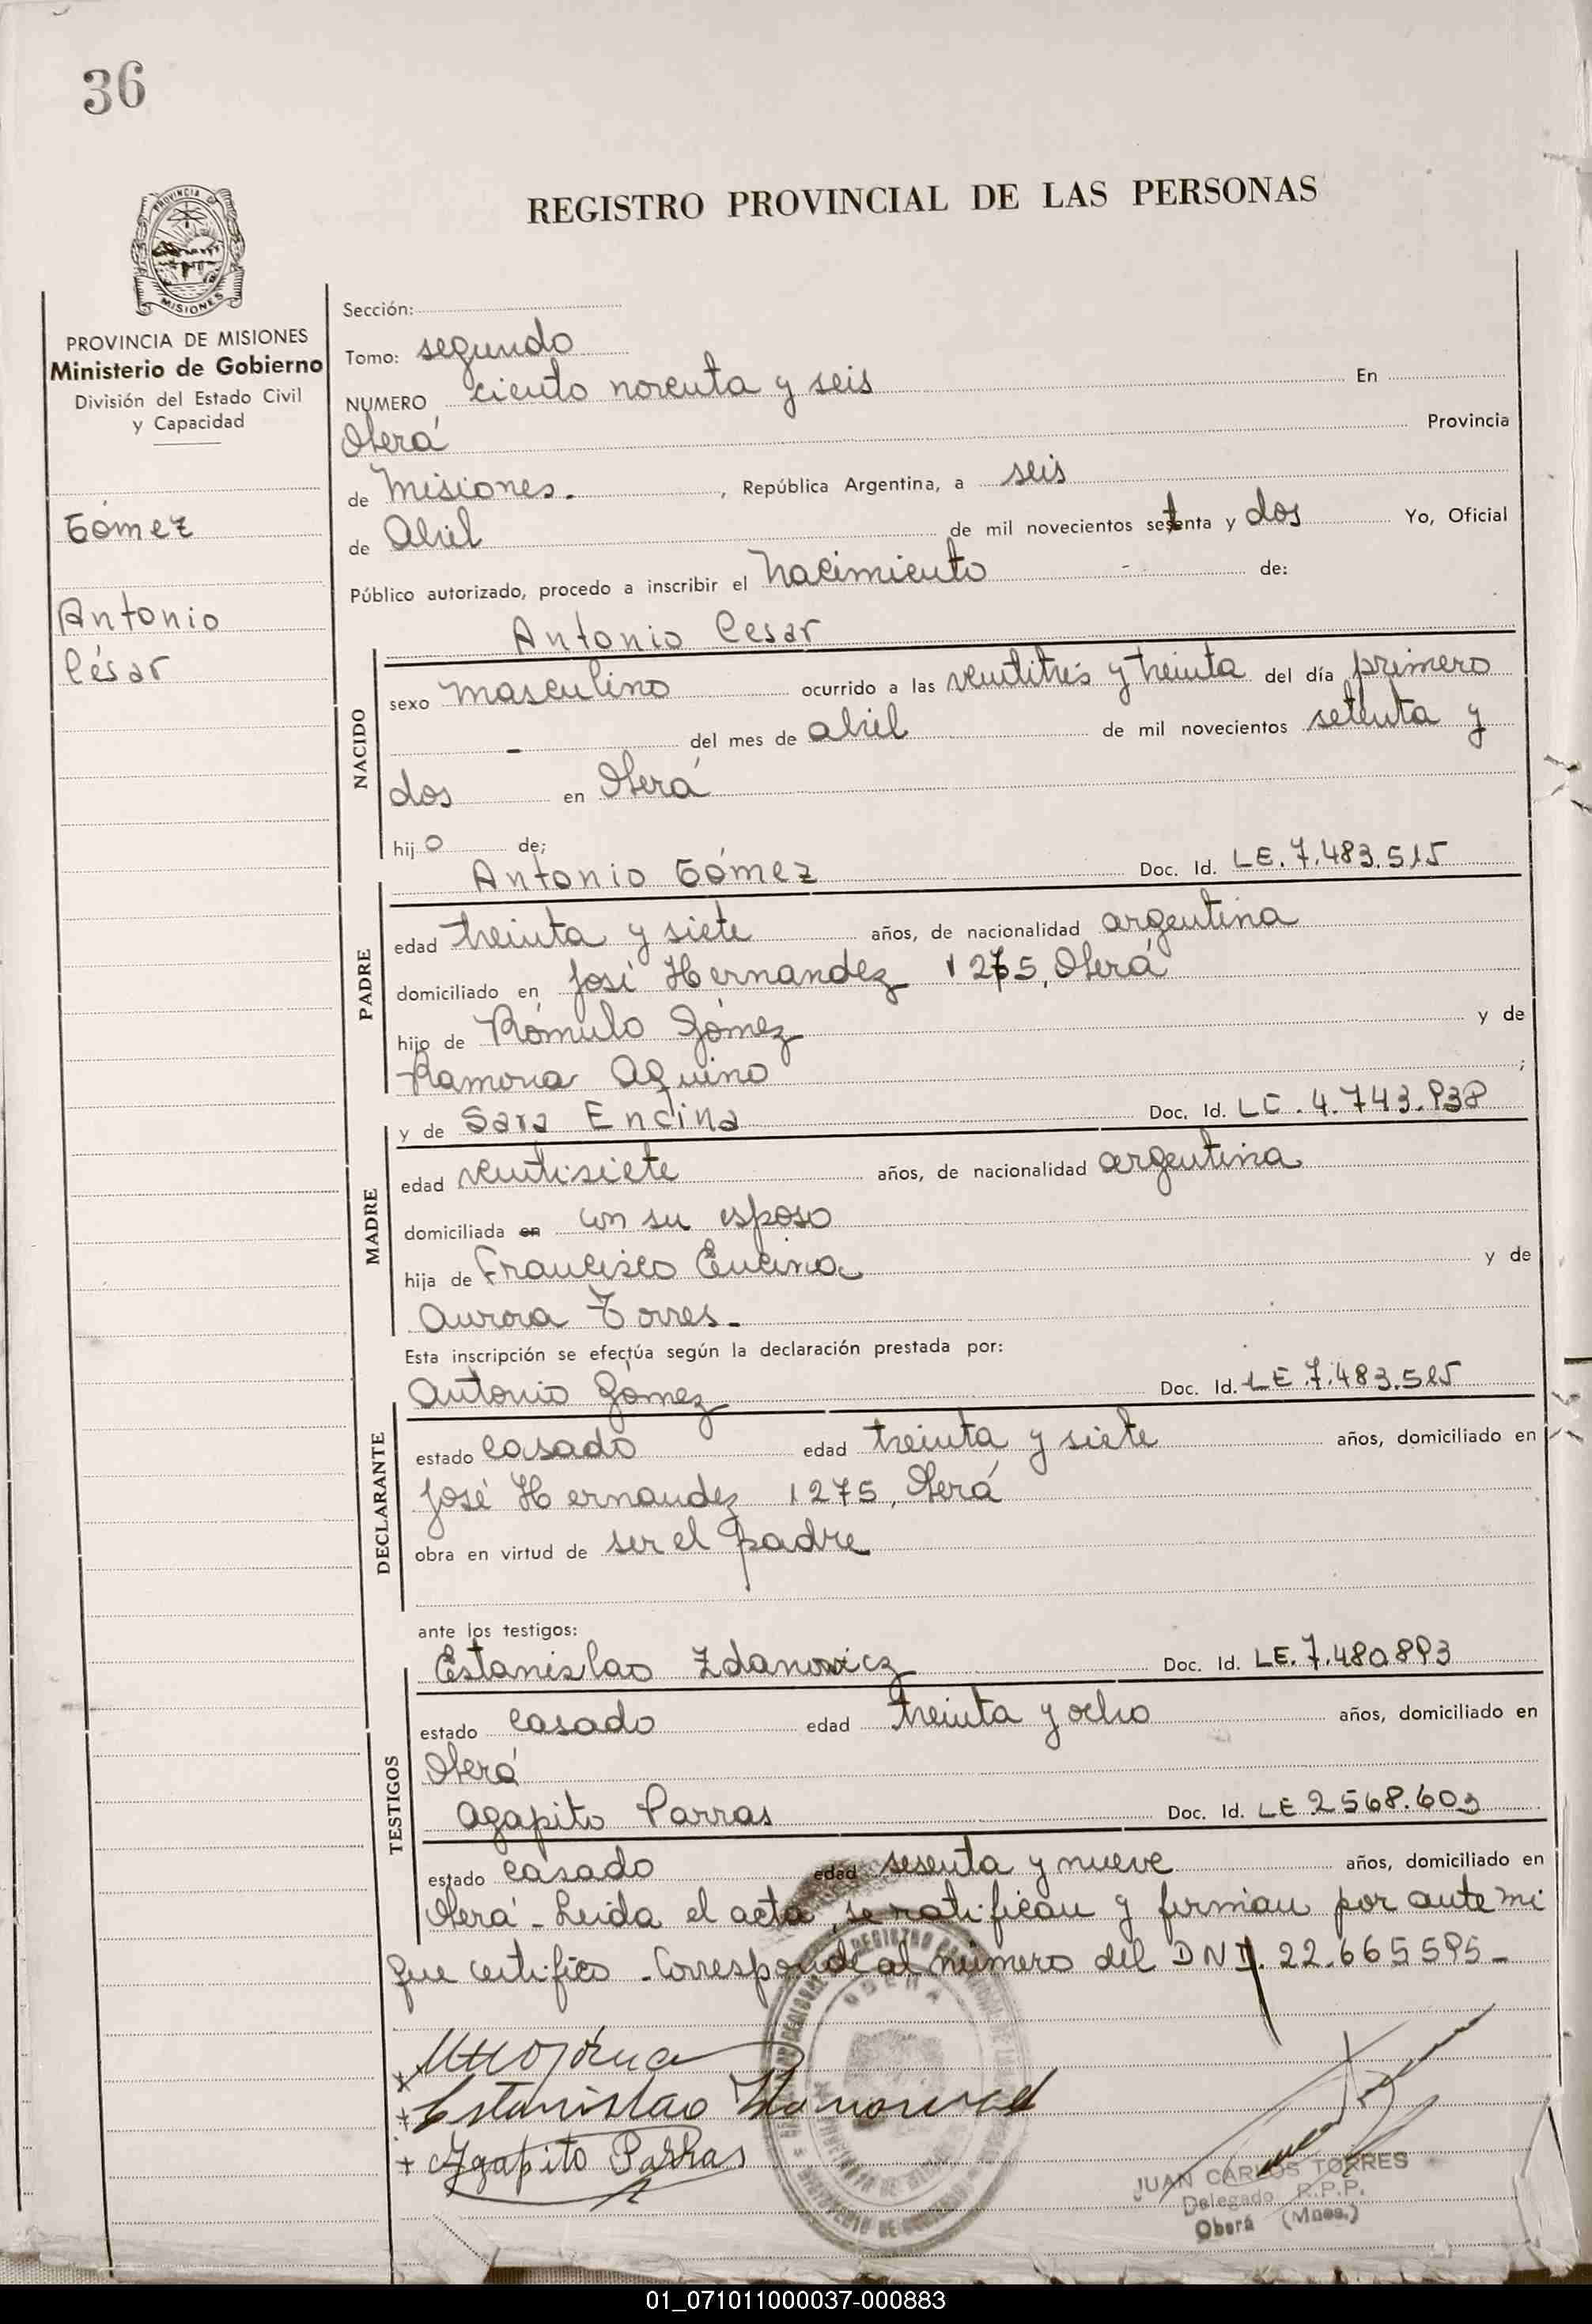 36
REGISTRO PROVINCIAL DE LAS PERSONAS
PROVINCIA
MISIONES
PROVINCIA DE MISIONES
Ministerio de Gobierno
División del Estado Civil
y Capacidad
Gómez
Antonio
César
Sección:
Tomo: segundo
NUMERO ciento noventa y seis En
Oberá Provincia
de Misiones. , República Argentina, a seis
de Abril de mil novecientos setenta y dos Yo, Oficial
Público autorizado, procedo a inscribir el Nacimiento - de:
Antonio Cesar
NACIDO
sexo masculino ocurrido a las veintitrés y treinta del día primero
- del mes de abril de mil novecientos setenta y
dos en Oberá
hijo de;
Antonio Gómez Doc. Id. LE. 7.483.515
PADRE
edad treinta y siete años, de nacionalidad argentina
domiciliado en José Hernandez 1275, Oberá
hijo de Rómulo Gómez y de
Ramona Aquino ;
y de Sara Encina Doc. Id. LC. 4.743.938
MADRE
edad veintisiete años, de nacionalidad argentina
domiciliada en con su esposo
hija de Francisco Encina y de
Aurora Torres.
Esta inscripción se efectúa según la declaración prestada por:
Antonio Gómez Doc. Id. LE. 7.483.515
DECLARANTE
estado casado edad treinta y siete años, domiciliado en
José Hernandez 1275, Oberá
obra en virtud de ser el padre
ante los testigos:
Estanislao Zdanovicz Doc. Id. LE. 7.480893
TESTIGOS
estado casado edad treinta y ocho años, domiciliado en
Oberá
Agapito Parras Doc. Id. LE 2568.603
estado casado edad sesenta y nueve años, domiciliado en
Oberá - Leida el acta, se ratifican y firman por ante mi
que certifico - Corresponde al número del DNI. 22.665595-
Estanislao
Agapito Parras
OBERA
JUAN CARLOS TORRES
Delegado R.P.P.
Oberá (Mnes.)
01_071011000037-000883